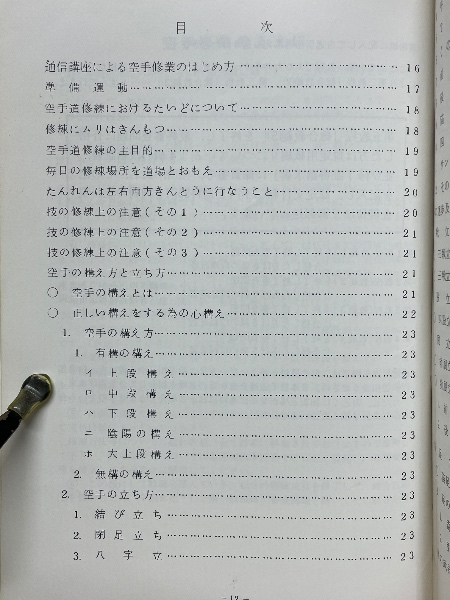 目次
通信講座による空手修業のはじめ方……………………16
準備運動……………………17
空手道修練におけるたいどについて……………………18
修練にムリはきんもつ……………………18
空手道修練の主目的……………………19
毎日の修練場所を道場とおもえ……………………19
たんれんは左右両方きんとうに行なうこと……………………20
技の修練上の注意(その1)……………………20
技の修練上の注意(その2)……………………21
技の修練上の注意(その3)……………………21
空手の構え方と立ち方……………………21
○ 空手の構えとは……………………21
○ 正しい構えをする為の心構え……………………22
1. 空手の構え方……………………23
1. 有構の構え……………………23
イ 上段構え……………………23
ロ 中段構え……………………23
ハ 下段構え……………………23
ニ 陰陽の構え……………………23
ホ 大上段構え……………………23
2. 無構の構え……………………23
2. 空手の立ち方……………………23
1. 結び立ち……………………23
2. 閉足立ち……………………23
3. 八字立……………………23
-12-